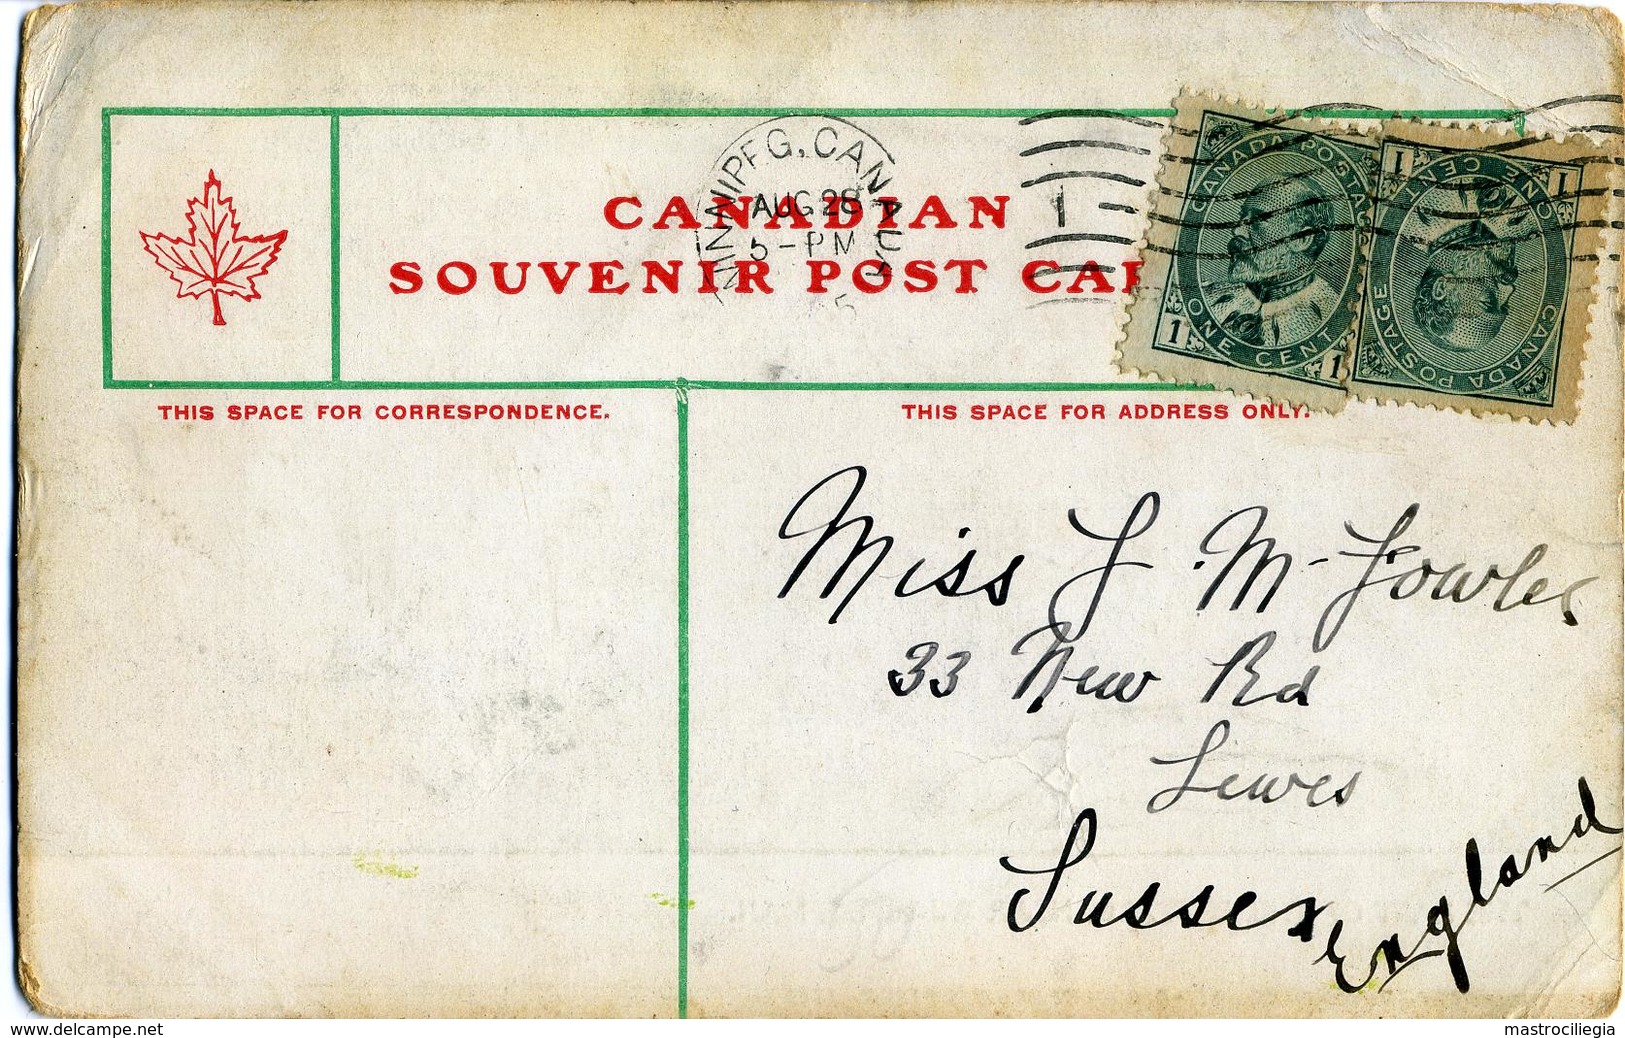 CANADIAN
SOUVENIR POST CAR
WINNIPEG, CANADA
AUG 28
5-PM
1
CANADA POSTAGE
ONE CENT
1 1
1 1
ONE CENT
CANADA POSTAGE
THIS SPACE FOR CORRESPONDENCE.
THIS SPACE FOR ADDRESS ONLY.
Miss J. M. Fowler
33 New Rd
Lewes
Sussex
England
www.delcampe.net
mastrociliegia